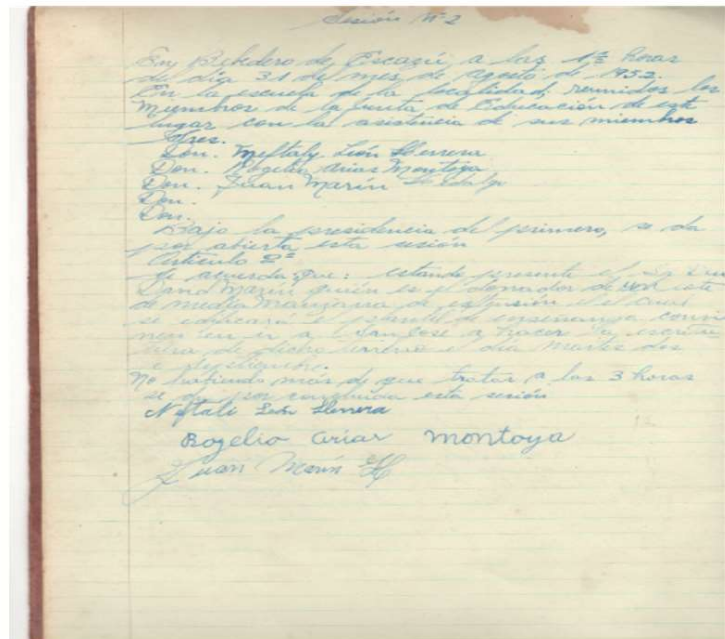 Sesión Nº 2
En Bebedero de Escazú, a las 1ª horas
de día 31 de mes de agosto de 1952.
En la escuela de la localidad, reunidos los
Miembros de la Junta de Educación de este
lugar con la asistencia de sus miembros
Sres.
Don. Neftaly León Herrera
Don. Rogelio Arias Montoya
Don. Juan Marín
Don.
Don.
Bajo la presidencia del primero, se da
por abierta esta sesión
Artículo 2º
Se acuerda que: estando presente el
David Marín quién es el donador de
de media manzana de extensión el cual
se edificará el plantel de enseñanza
en ir a San José a hacer la
de dicho terreno el día martes dos
No habiendo más de que tratar a las 3 horas
se da por concluida esta sesión
Neftalí León Herrera
Rogelio Arias Montoya
Juan Marín H